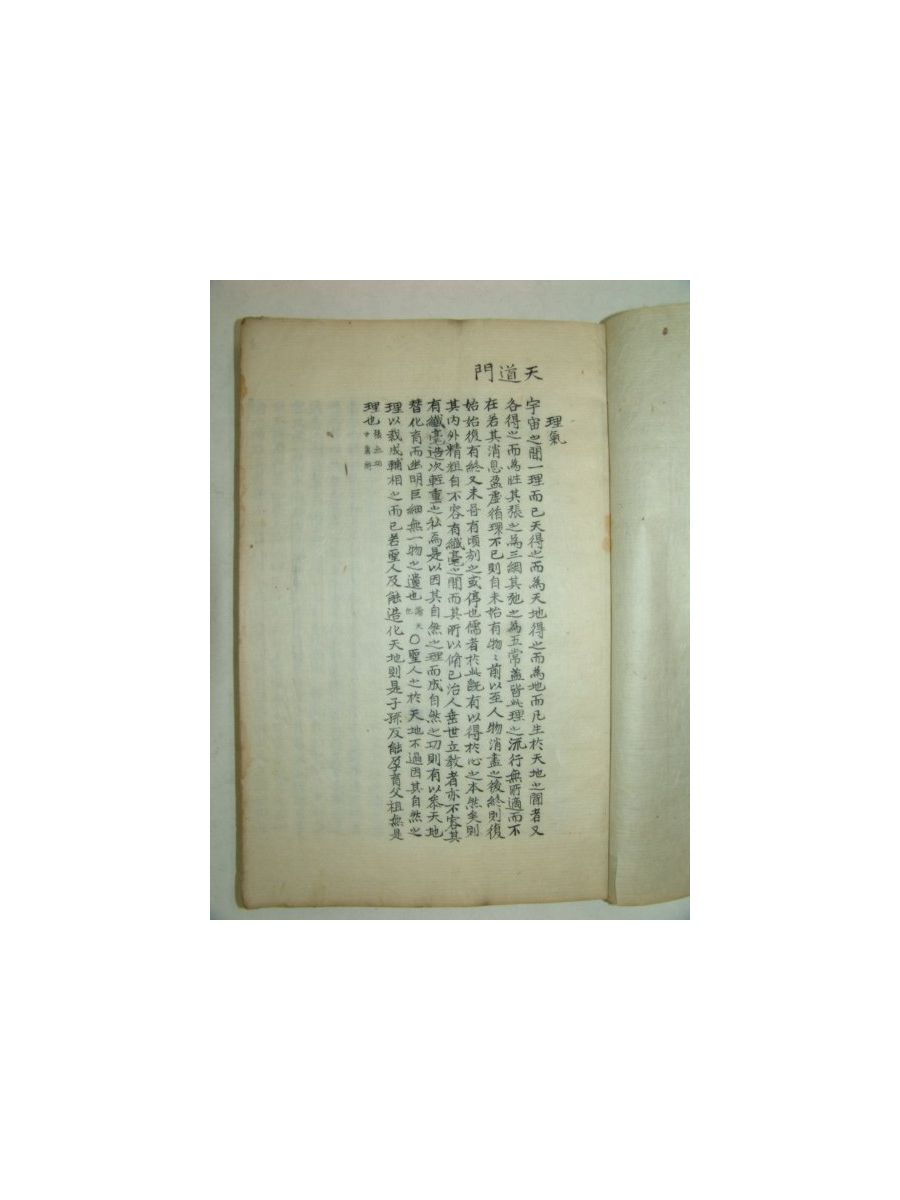 天道門
理氣
宇宙之間一理而已天得之而為天地得之而為地而凡生於天地之間者又
各得之而為性其張之為三綱其紀之為五常盖皆此理之流行無所適而不
在若其消息盈虛循環不已則自未始有物〻前以至人物消盡之後終則復
始始復有終又未嘗有頃刻之或停也儒者於此既有以得於心之本然矣則
其内外精粗自不容有纖毫之間而其所以脩已治人垂世立教者亦不容其
有纖毫造次輕重之私焉是以因其自然之理而成自然之功則有以叅天地
賛化育而幽明巨細無一物之遺也 〇聖人之於天地不過因其自然之
理以裁成輔相之而已若聖人反能造化天地則是子孫反能孕育父祖無是
理也